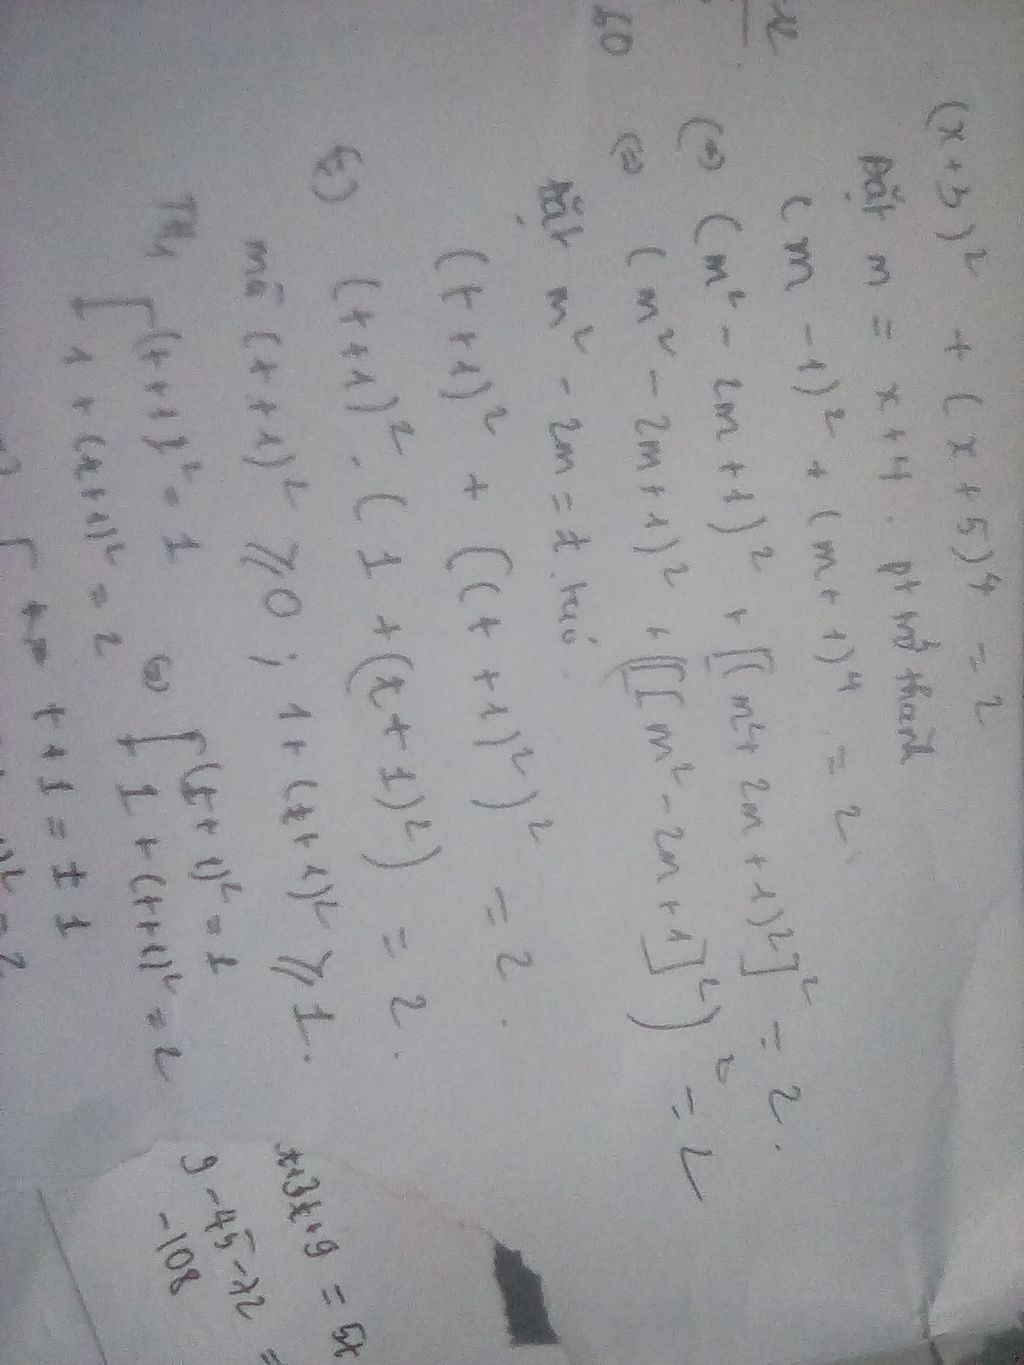 (x+3)² + (x+5)⁴ = 2
Đặt m = x+4. pt trở thành
(m-1)² + (m+1)⁴ = 2
(=) (m² - 2m + 1)² + [(m² + 2m + 1)²]² = 2.
(=) (m² - 2m + 1)² + ([[m² - 2m + 1]²)² = 2
Đặt m² - 2m = t
(t+1)² + ((t+1)²)² = 2.
(t+1)² . (1 + (t+1)²) = 2.
mà (t+1)² ⩾ 0 ; 1 + (t+1)² ⩾ 1.
TH1 [ (t+1)² = 1
1 + (t+1)² = 2
(=) [ (t+1)² = 1
1 + (t+1)² = 2
t+1 = ±1
60
9 - 45 - 72 =
-108